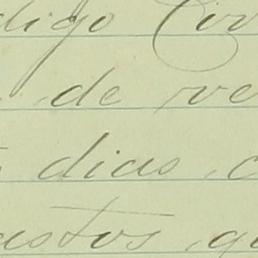 digo Civ
de ve
dias, c
astos, qu